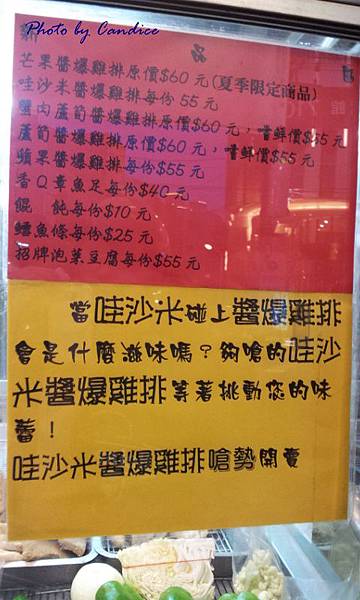 Photo by Candice
新 品
芒果醬爆雞排原價$60元(夏季限定商品)
哇沙米醬爆雞排每份55元
蟹肉蘆筍醬爆雞排原價$60元，嘗鮮價$55元
蘆筍醬爆雞排原價$60元，嘗鮮價$55元
蘋果醬爆雞排每份$55元
香Q章魚足每份$40元
餛 飩每份$10元
鱈魚條每份$25元
招牌泡菜豆腐每份$55元
當哇沙米碰上醬爆雞排
會是什麼滋味嗎？夠嗆的哇沙
米醬爆雞排等著挑動您的味
蕾！
哇沙米醬爆雞排嗆勢開賣